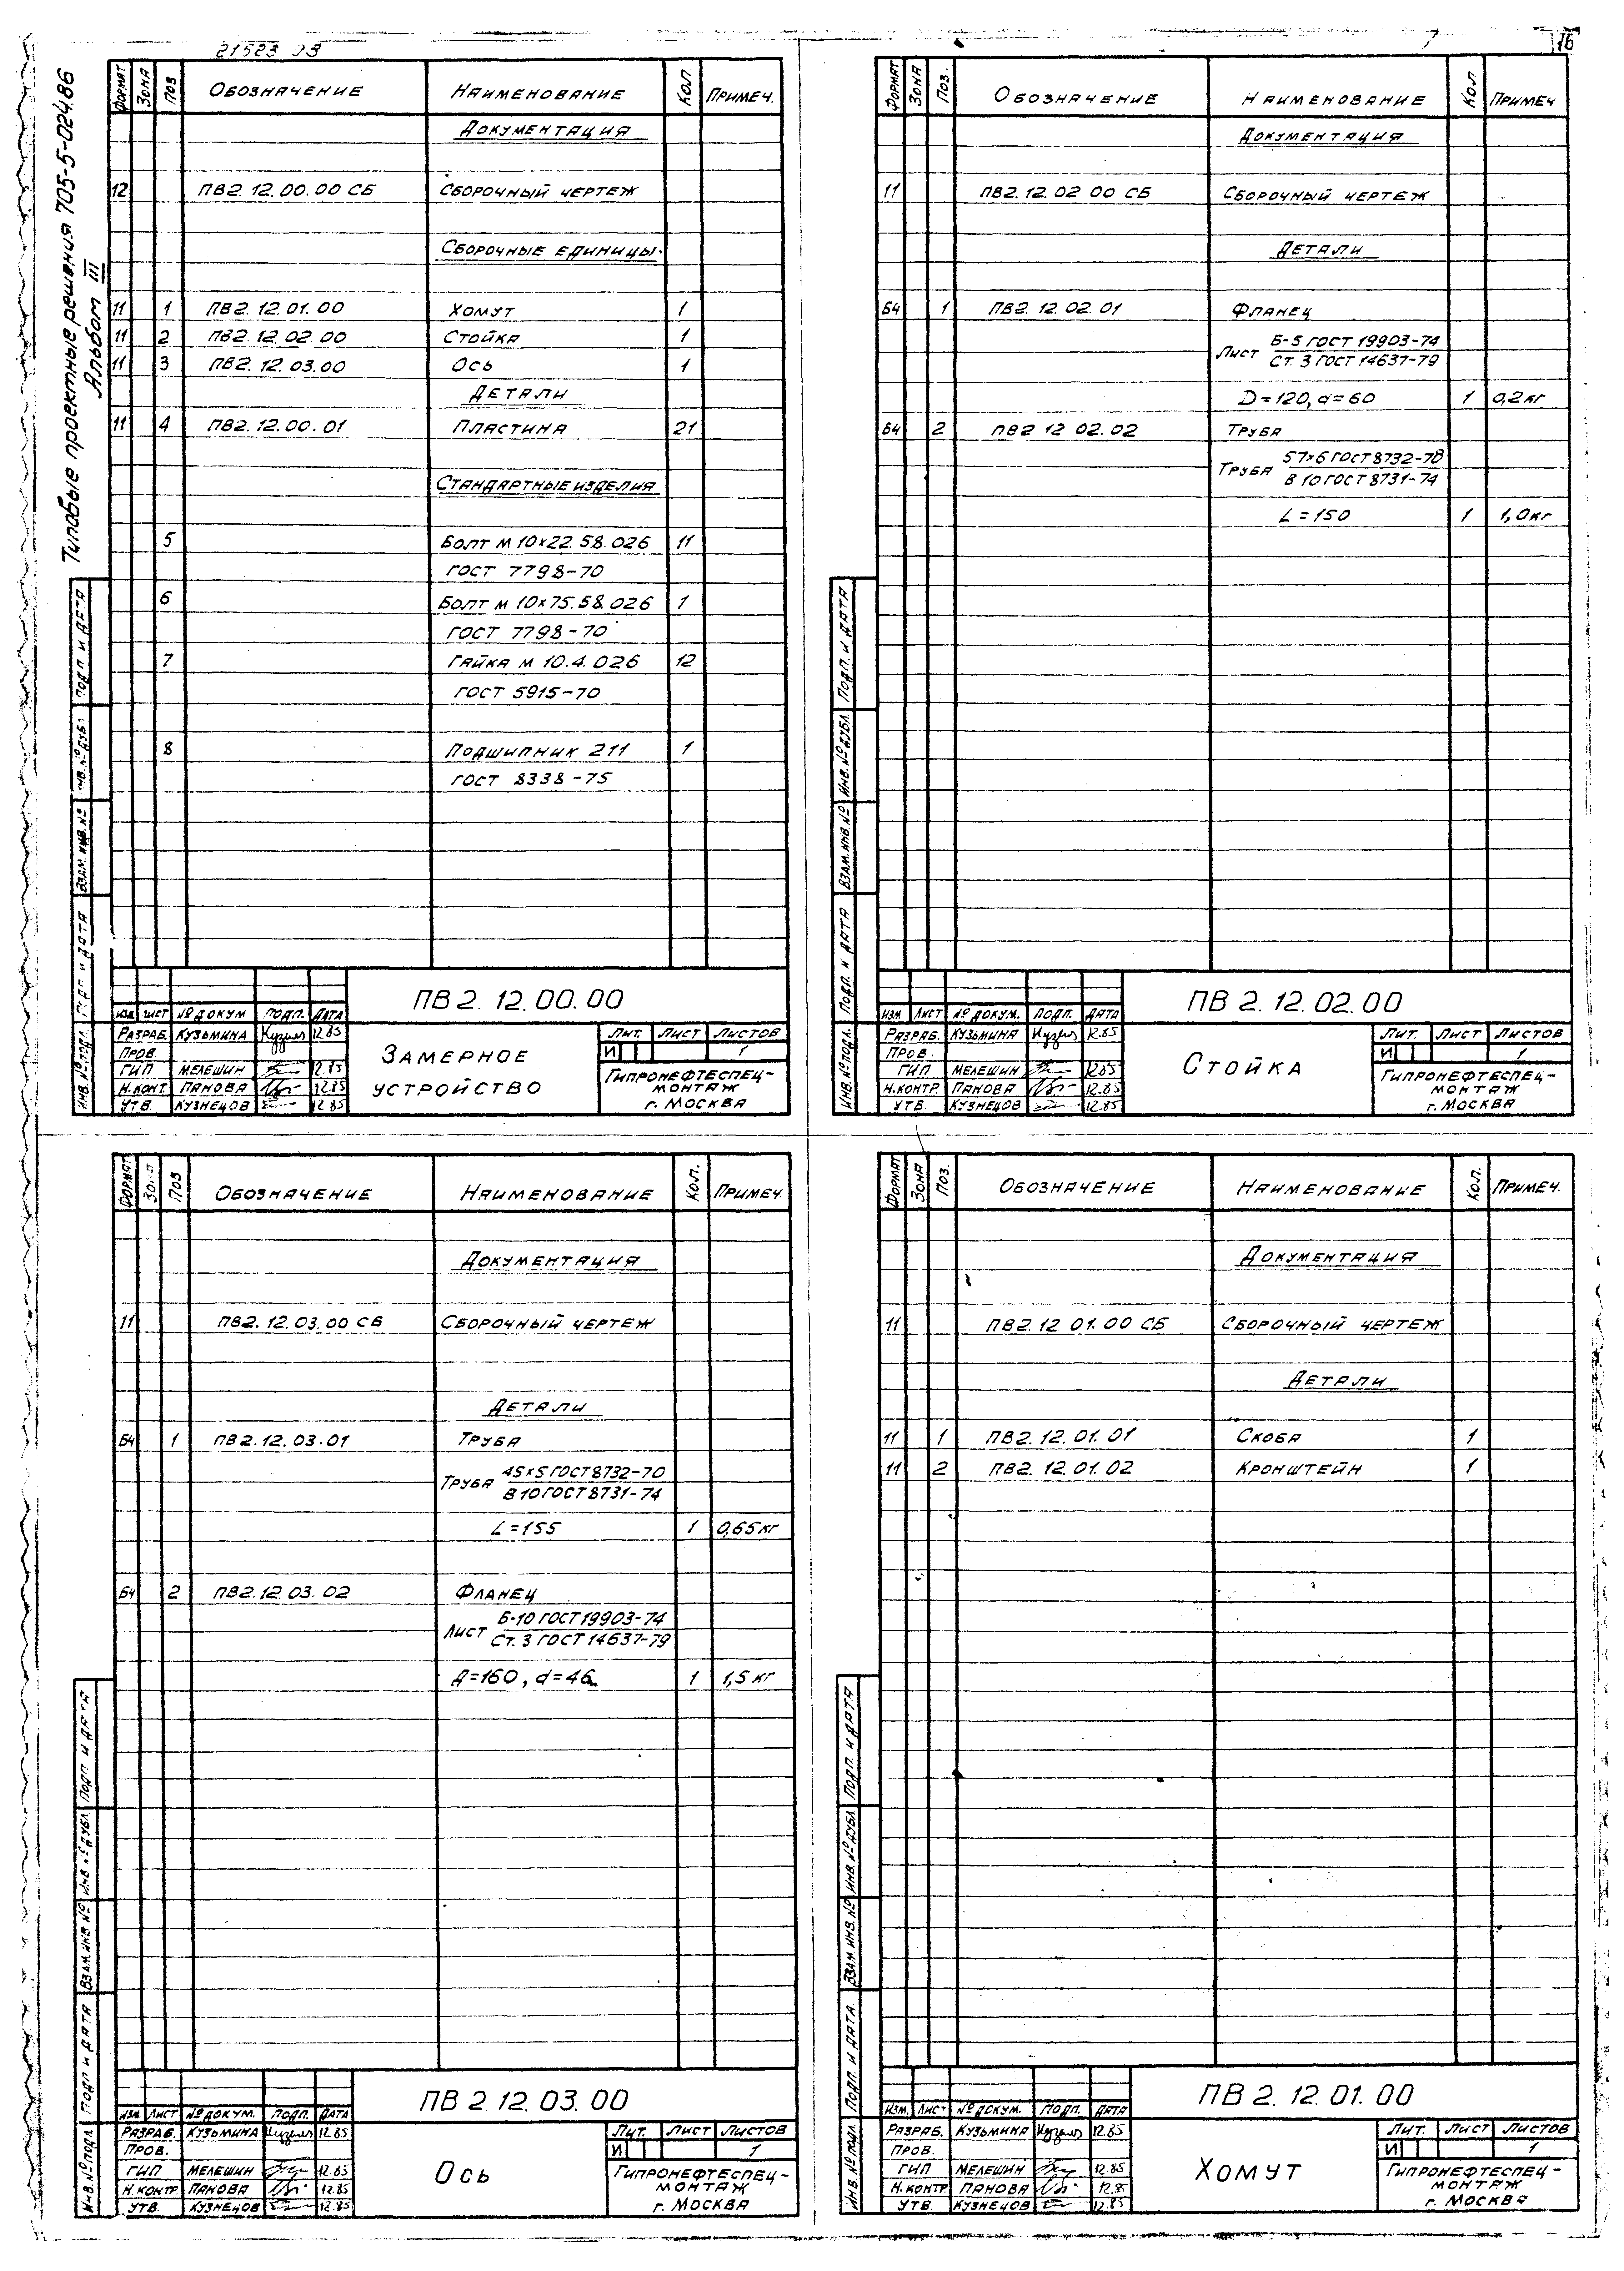 21523 03
16
Типовые проектные решения 705-5-024.86
Альбом III
Формат Зона Поз Обозначение Наименование Кол. Примеч.
Документация
12 ПВ2.12.00.00 СБ Сборочный чертеж
Сборочные единицы.
11 1 ПВ2.12.01.00 Хомут 1
11 2 ПВ2.12.02.00 Стойка 1
11 3 ПВ2.12.03.00 Ось 1
Детали
11 4 ПВ2.12.00.01 Пластина 21
Стандартные изделия
5 Болт М 10×22.58.026 11
ГОСТ 7798-70
6 Болт М 10×75.58.026 1
ГОСТ 7798-70
7 Гайка М 10.4.026 12
ГОСТ 5915-70
8 Подшипник 211 1
ГОСТ 8338-75
Подп. и дата
Инв. № дубл.
Взам. инв. №
Подп и дата
Инв. № подл.
ПВ 2.12.00.00
Изм Лист № докум Подп. Дата
Разраб. Кузьмина 12.85
Пров.
ГИП Мелешин 12.85
Н.конт. Панова 12.85
Утв. Кузнецов 12.85
Замерное
устройство
Лит. Лист Листов
И 1
Гипронефтеспец-
монтаж
г. Москва
Формат Зона Поз. Обозначение Наименование Кол Примеч
Документация
11 ПВ2.12.02 00 СБ Сборочный чертеж
Детали
Б4 1 ПВ2.12.02.01 Фланец
Лист Б-5 ГОСТ 19903-74
Ст. 3 ГОСТ 14637-79
D=120, d=60 1 0,2 кг
Б4 2 ПВ2 12 02.02 Труба
Труба 57×6 ГОСТ 8732-78
В 10 ГОСТ 8731-74
L=150 1 1,0 кг
Подп. и дата
Инв. № дубл.
Взам. инв. №
Подп. и дата
Инв. № подл.
ПВ 2.12.02.00
Изм Лист № докум. Подп. Дата
Разраб. Кузьмина 12.85
Пров.
ГИП Мелешин 12.85
Н.контр. Панова 12.85
Утв. Кузнецов 12.85
Стойка
Лит. Лист Листов
И 1
Гипронефтеспец-
монтаж
г. Москва
Формат Зона Поз Обозначение Наименование Кол. Примеч.
Документация
11 ПВ2.12.03.00 СБ Сборочный чертеж
Детали
Б4 1 ПВ2.12.03.01 Труба
Труба 45×5 ГОСТ 8732-70
В 10 ГОСТ 8731-74
L=155 1 0,65 кг
Б4 2 ПВ2.12.03.02 Фланец
Лист Б-10 ГОСТ 19903-74
Ст. 3 ГОСТ 14637-79
Д=160, d=46 1 1,5 кг
Подп и дата
Инв № дубл.
Взам. инв №
Подп и дата
Инв. № подл
ПВ 2.12.03.00
Изм. Лист № докум. Подп. Дата
Разраб. Кузьмина 12.85
Пров.
ГИП Мелешин 12.85
Н.контр. Панова 12.85
Утв. Кузнецов 12.85
Ось
Лит. Лист Листов
И 1
Гипронефтеспец-
монтаж
г. Москва
Формат Зона Поз. Обозначение Наименование Кол. Примеч.
Документация
11 ПВ2.12 01.00 СБ Сборочный чертеж
Детали
11 1 ПВ2.12.01.01 Скоба 1
11 2 ПВ2.12.01.02 Кронштейн 1
Подп. и дата
Инв. № дубл
Взам. инв. №
Подп. и дата
Инв. № подл
ПВ 2.12.01.00
Изм. Лист № докум. Подп. Дата
Разраб. Кузьмина 12.85
Пров.
ГИП Мелешин 12.85
Н.контр. Панова 12.8
Утв. Кузнецов 12.85
Хомут
Лит. Лист Листов
И 1
Гипронефтеспец-
монтаж
г. Москва